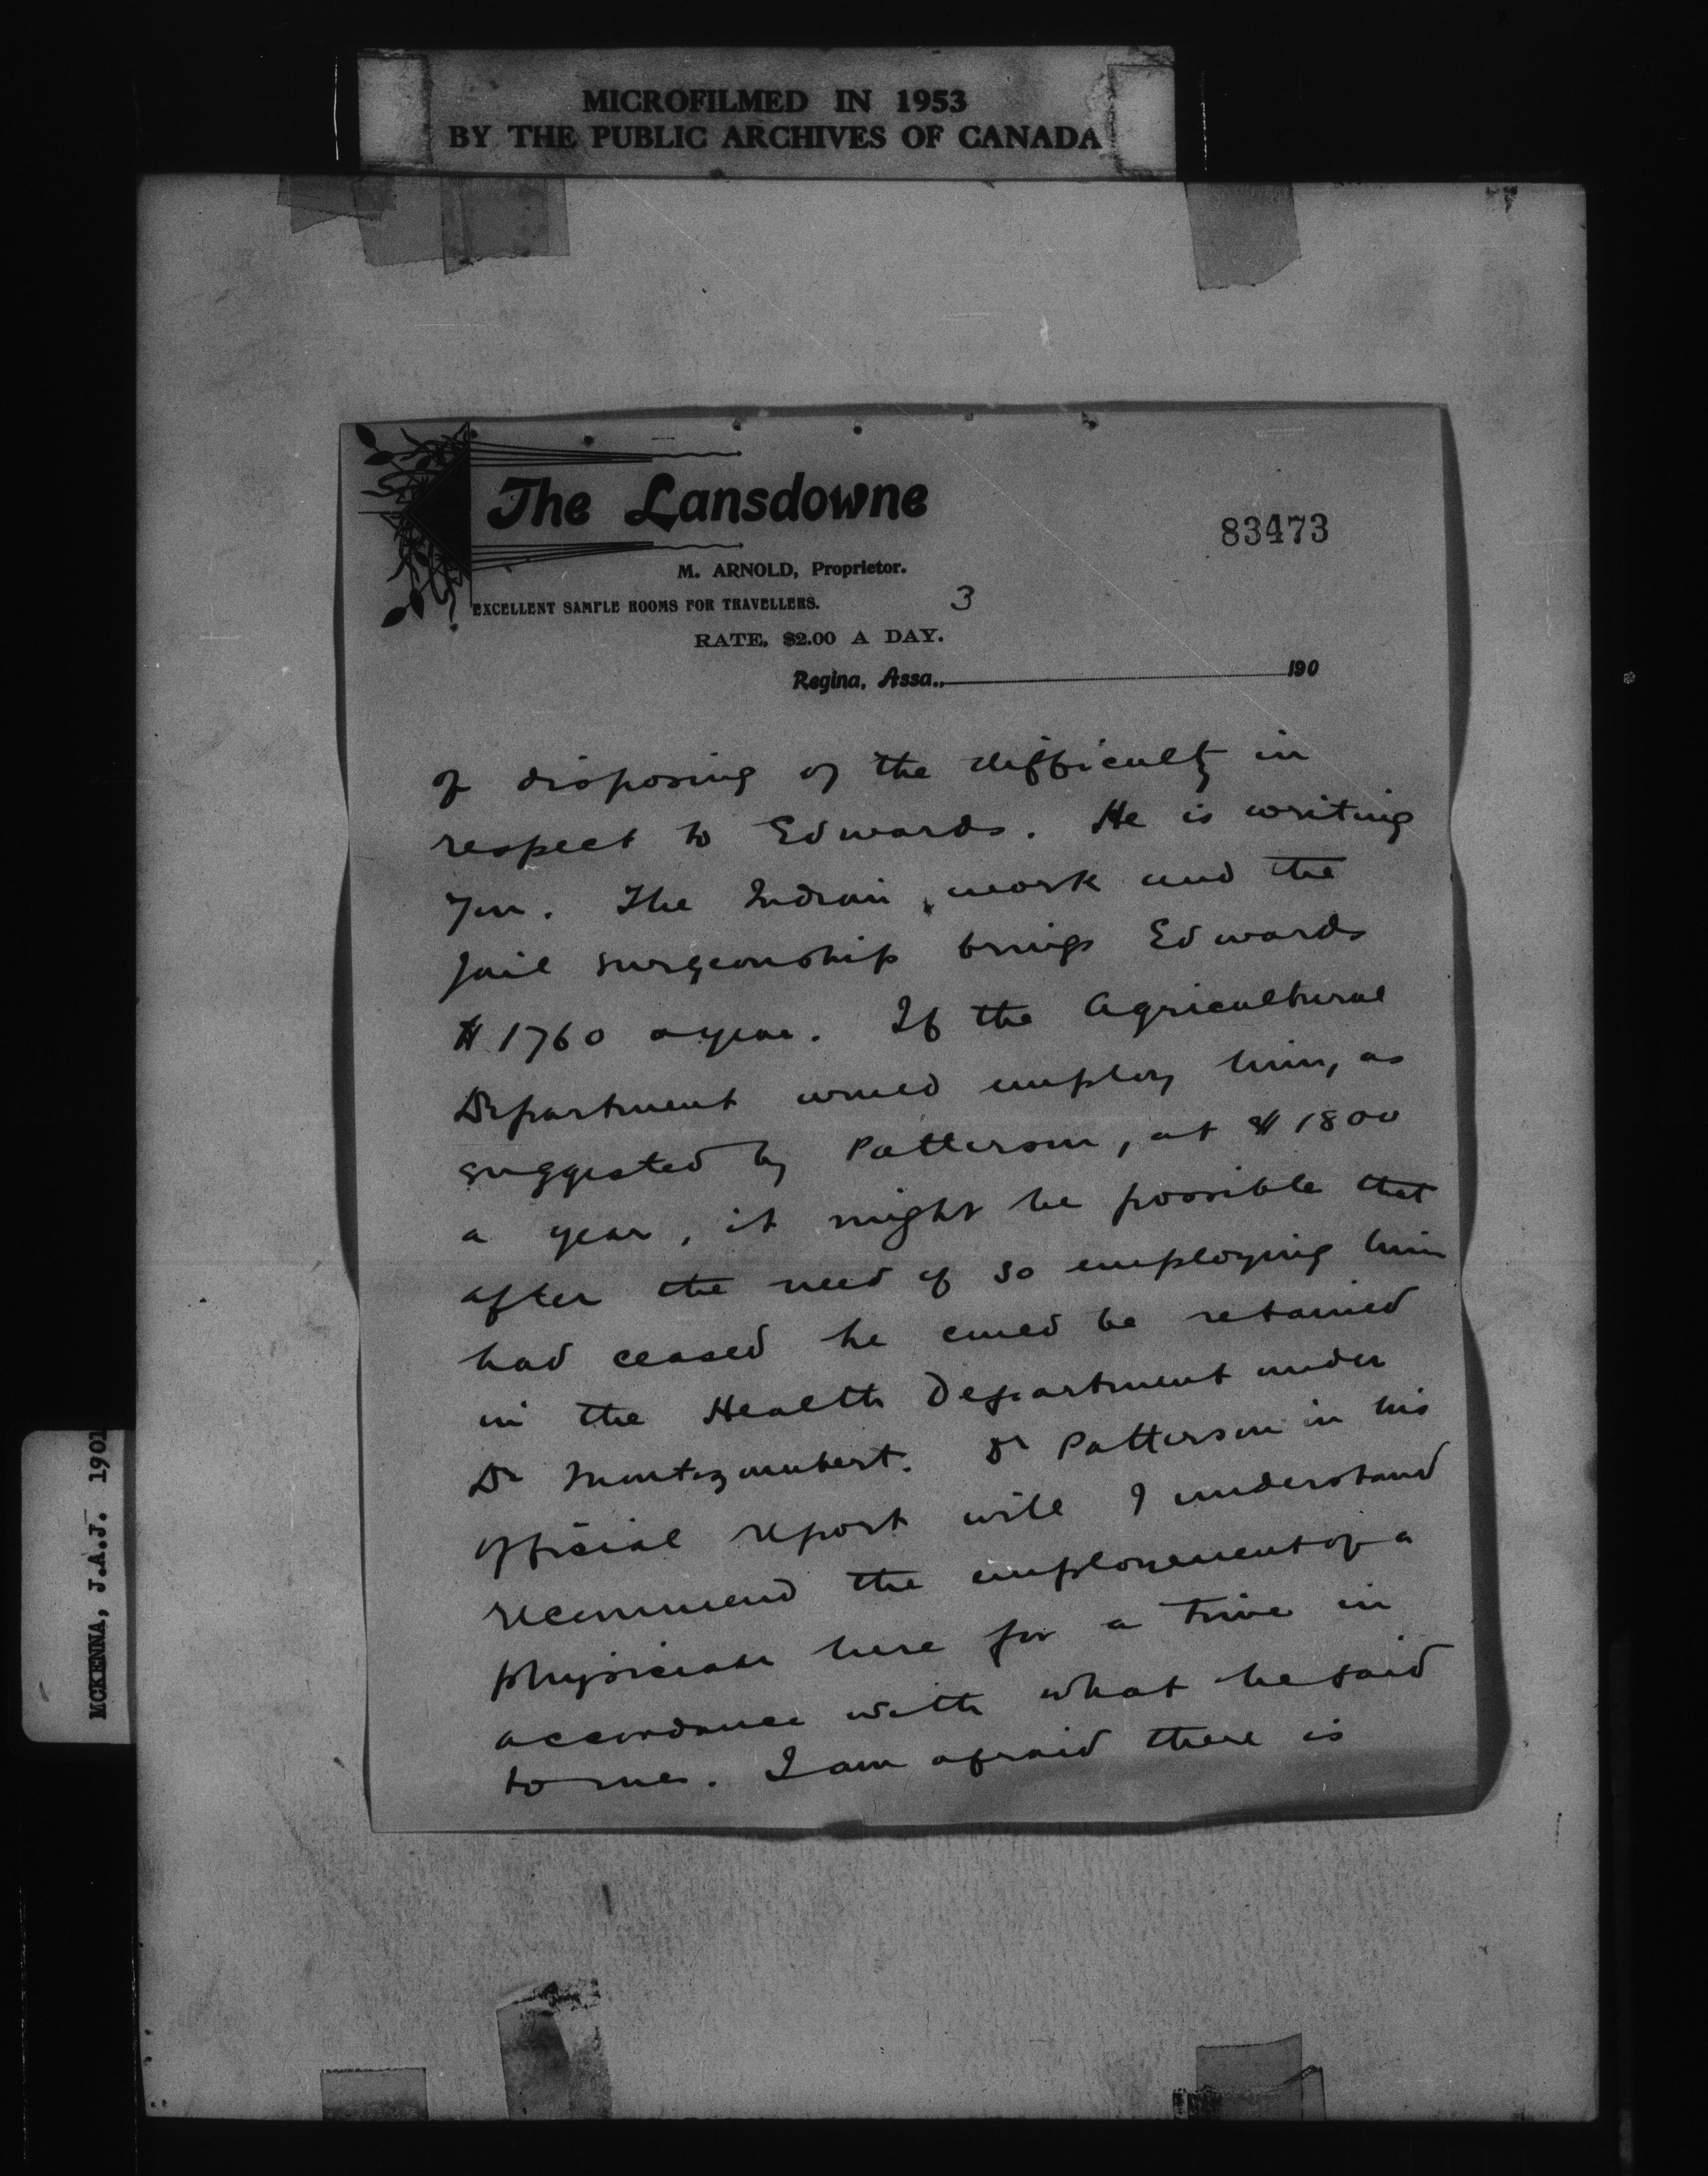 MICROFILMED IN 1953
BY THE PUBLIC ARCHIVES OF CANADA
The Lansdowne
83473
M. ARNOLD, Proprietor.
EXCELLENT SAMPLE ROOMS FOR TRAVELLERS.
3
RATE, $2.00 A DAY.
Regina, Assa., 190
of disposing of the difficulty in
respect to Edwards. He is writing
you. The Indian work and the
jail surgeonship brings Edwards
$1760 a year. If the Agricultural
Department would employ him, as
suggested by Patterson, at $1800
a year, it might be possible that
after the need of so employing him
had ceased he could be retained
in the Health Department under
Dr Montizambert. Dr Patterson in his
official report will I understand
recommend the employement of a
physician here for a time in
accordance with what he said
to me. I am afraid there is
MCKENNA, J.A.J. 1901